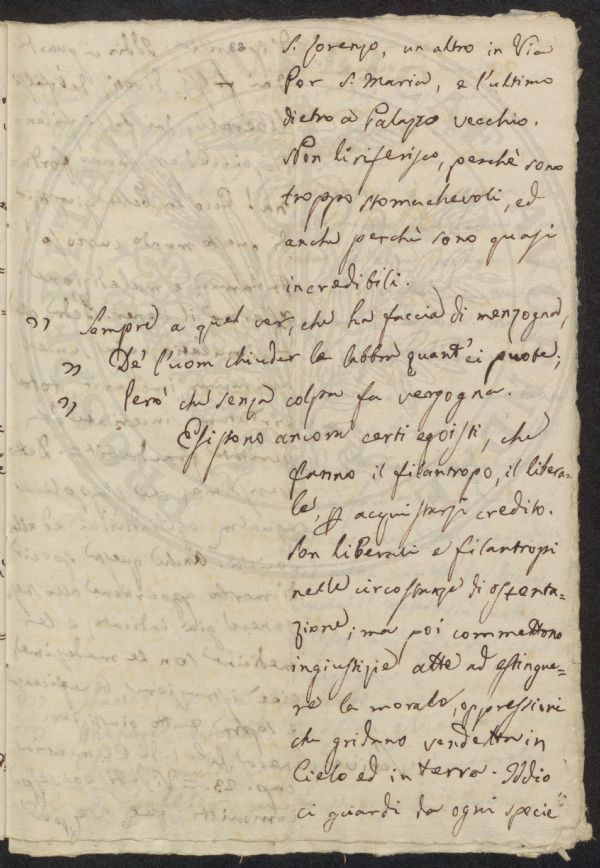 S. Lorenzo, un altro in Via
Por S. Maria, e l'ultimo
dietro a Palazzo vecchio.
Non li riferisco, perchè sono
troppo stomachevoli, ed
anche perchè sono quasi
incredibili.
" Sempre a quel ver, che ha faccia di menzogna,
" De' l'uom chiuder le labbra quant'ei puote;
" Però che senza colpa fa vergogna.
Esistono ancora certi egoisti, che
fanno il filantropo, il libera=
le, p acquistarsi credito.
Son liberali e filantropi
nelle circostanze di ostenta=
zione; ma poi commettono
ingiustizie atte ad estingue=
re la morale, oppressioni
che gridano vendetta in
Cielo ed in terra. Iddio
ci guardi da ogni specie